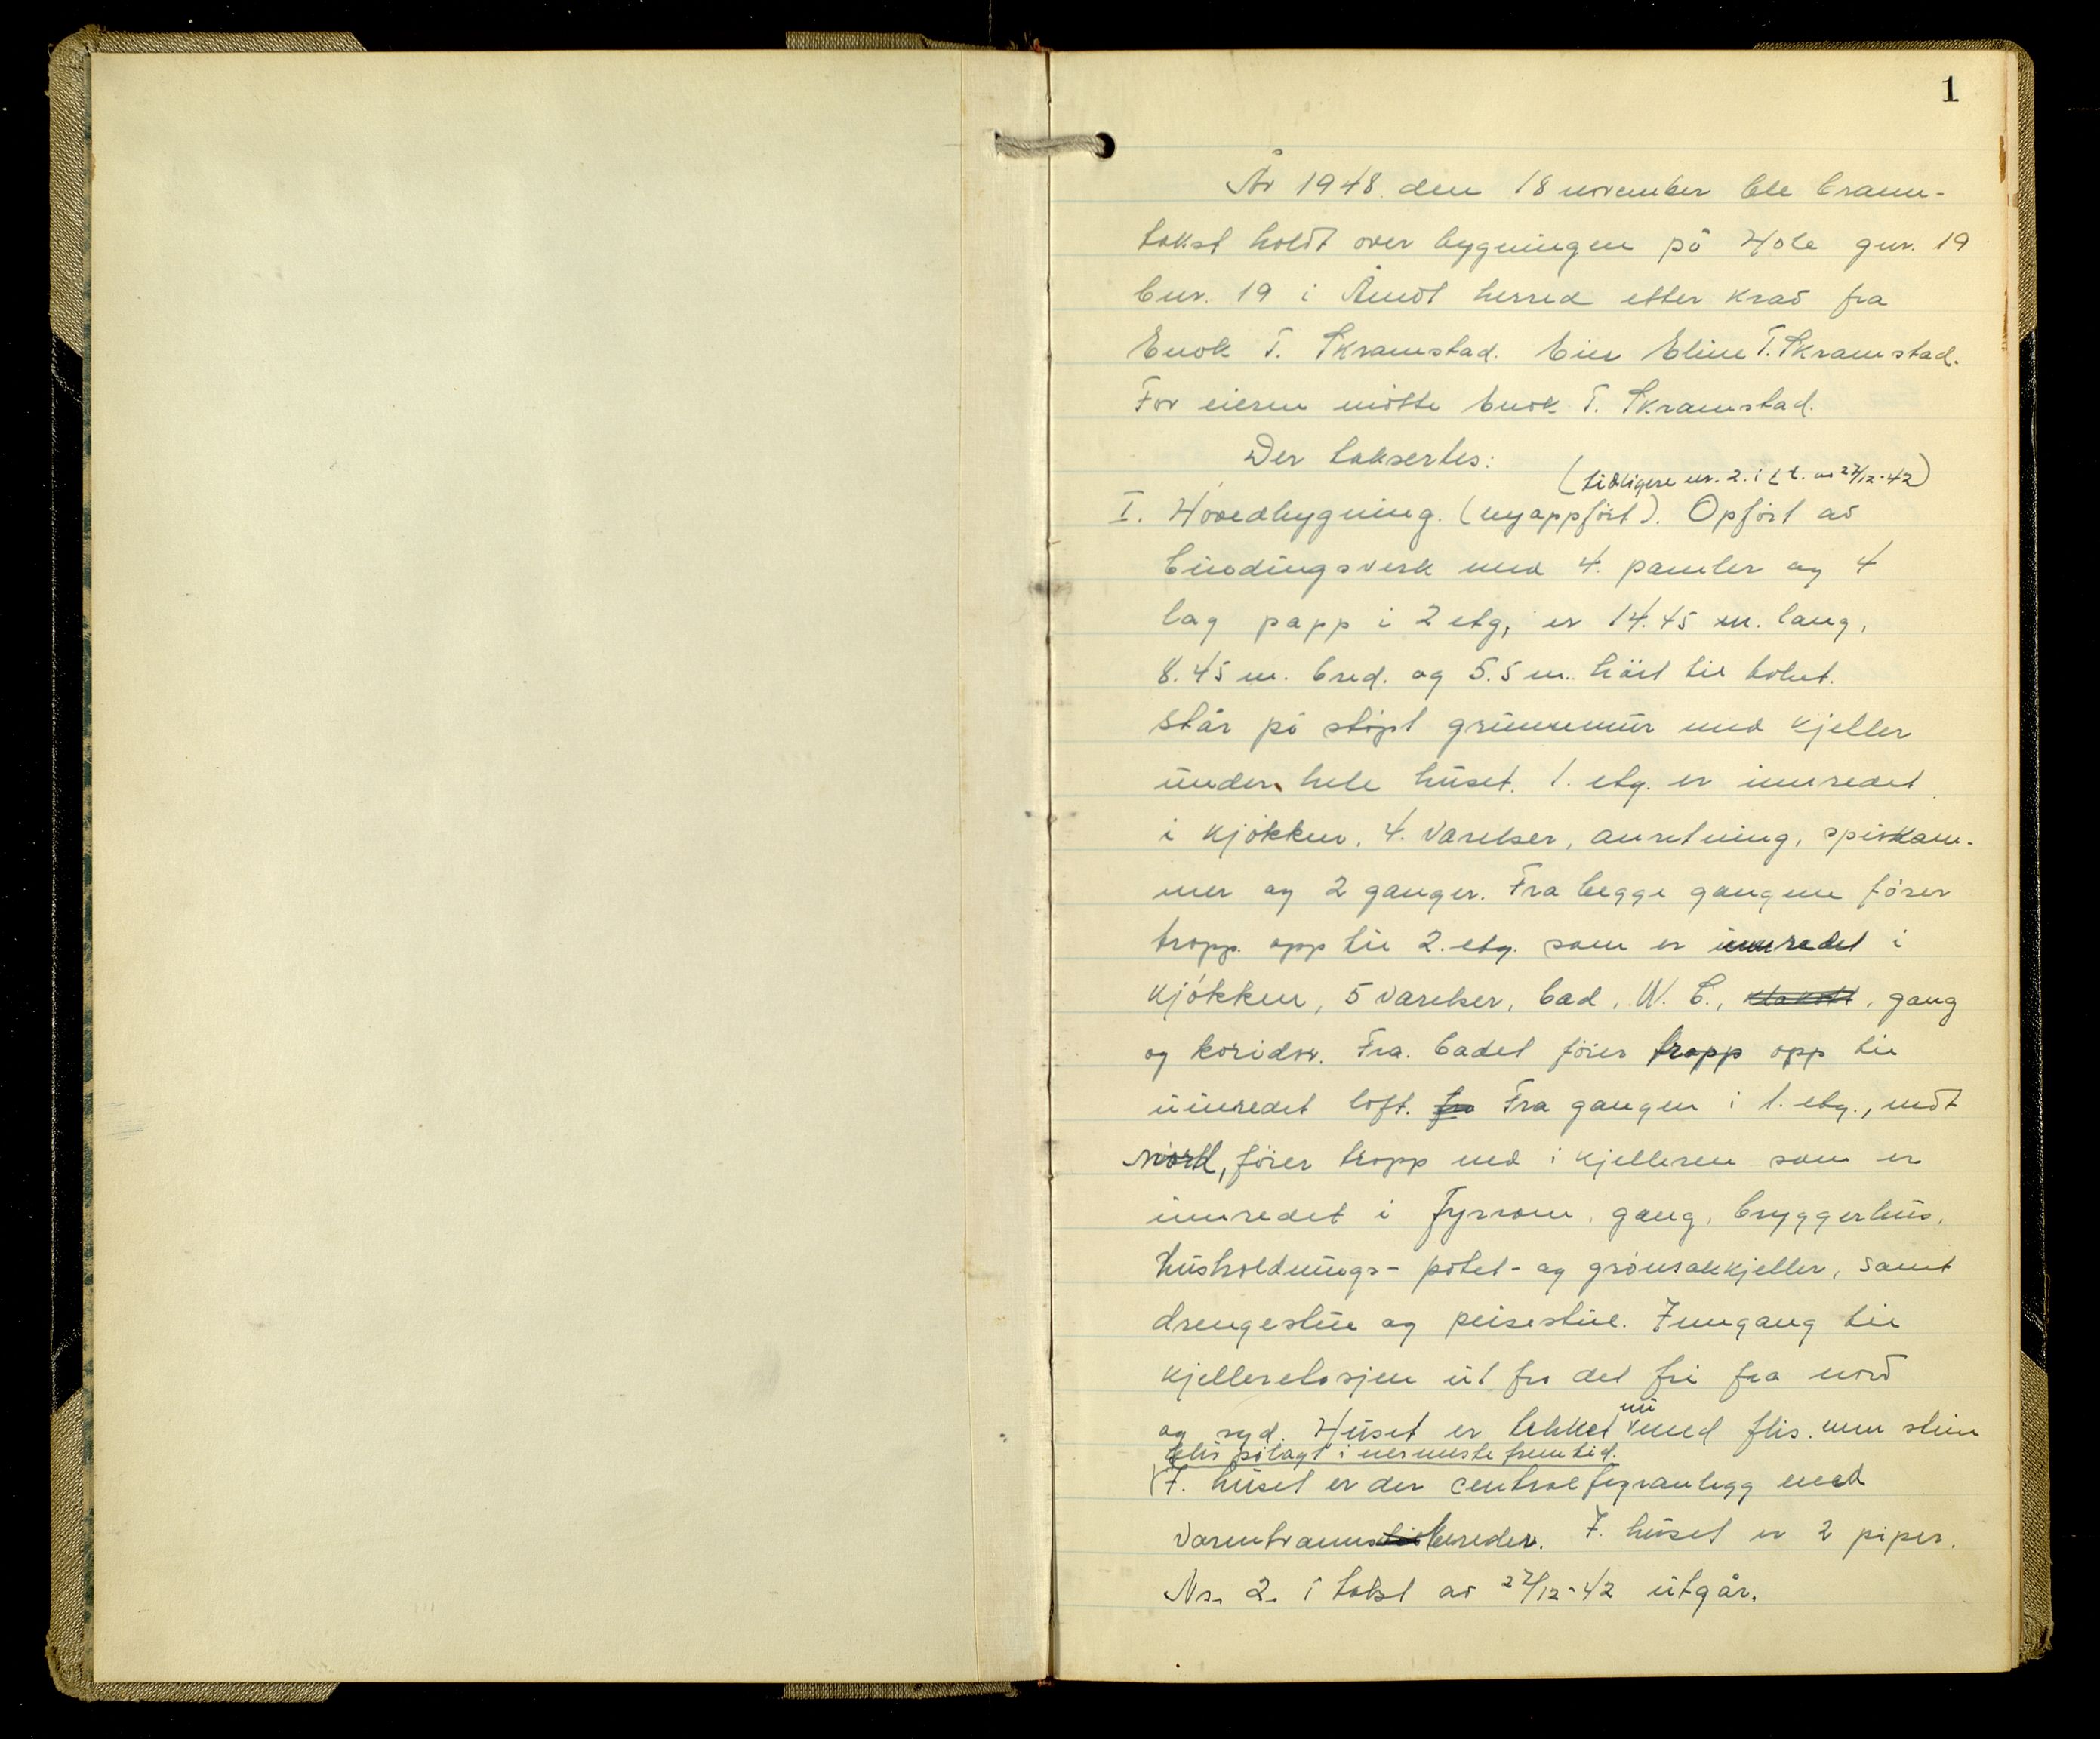 1
År 1948 den 18 november ble brann-
takst holdt over bygningen på Hole gnr. 19
bnr. 19 i Åmot herred etter krav fra
Enok T. Skramstad. Eier Eline T. Skramstad.
For eieren møtte Enok T. Skramstad.
Der taksertes:
(tidligere nr. 2. i t. av 27/12-42)
I. Hovedbygning. (nyoppført). Opført av
bindingsverk med 4. paneler og 4
lag papp i 2 etg, er 14.45 m. lang,
8.45 m. bred. og 5.5 m. høit til taket.
Står på støpt grunnmur med kjeller
under hele huset. 1. etg. er innredet
i kjøkken, 4. værelser, anretning, spiskam-
mer og 2 ganger. Fra begge gangene fører
tropp. opp til 2. etg. som er innredet i
kjøkken, 5 værelser, bad, W. C., gang
og koridor. Fra. badet fører tropp opp til
uinredet loft. fra Fra gangen i 1. etg., mot
nord, fører tropp ned i kjelleren som er
innredet i fyrrom, gang, bryggerhus,
husholdnings- potet- og grønsakkjeller, samt
drengestue og peisestue. Inngang til
kjelleretasjen ut fra det fri fra nord
og syd. Huset er tekket nu med flis. men
blir pålagt i nermeste fremtid.
I. huset er der centralfyranlegg med
varmtvannsbereder. I. huset er 2 piper.
Nr. 2. i takst av 27/12-42 utgår.